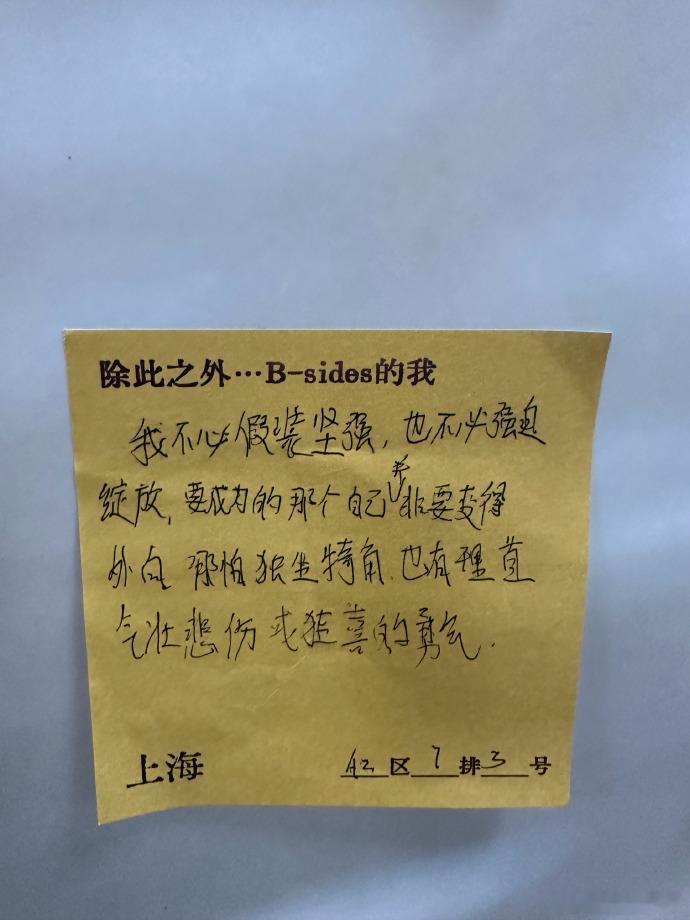 除此之外…B-sides的我
我不必假装坚强，也不必强迫
绽放，要成为的那个自己并非要变得
外向 哪怕独坐犄角、也有理直
气壮悲伤或狂喜的勇气.
上海 区7排3号